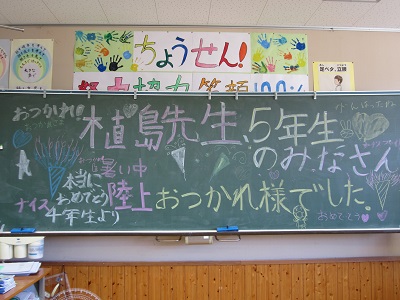 ちょうせん!
努力 協力 笑顔 100%
おつかれ!
植島先生、5年生
のみなさん
暑い中
本当に
おめでとう
陸上
おつかれ様でした。
ナイス
4年生より
おめでとう